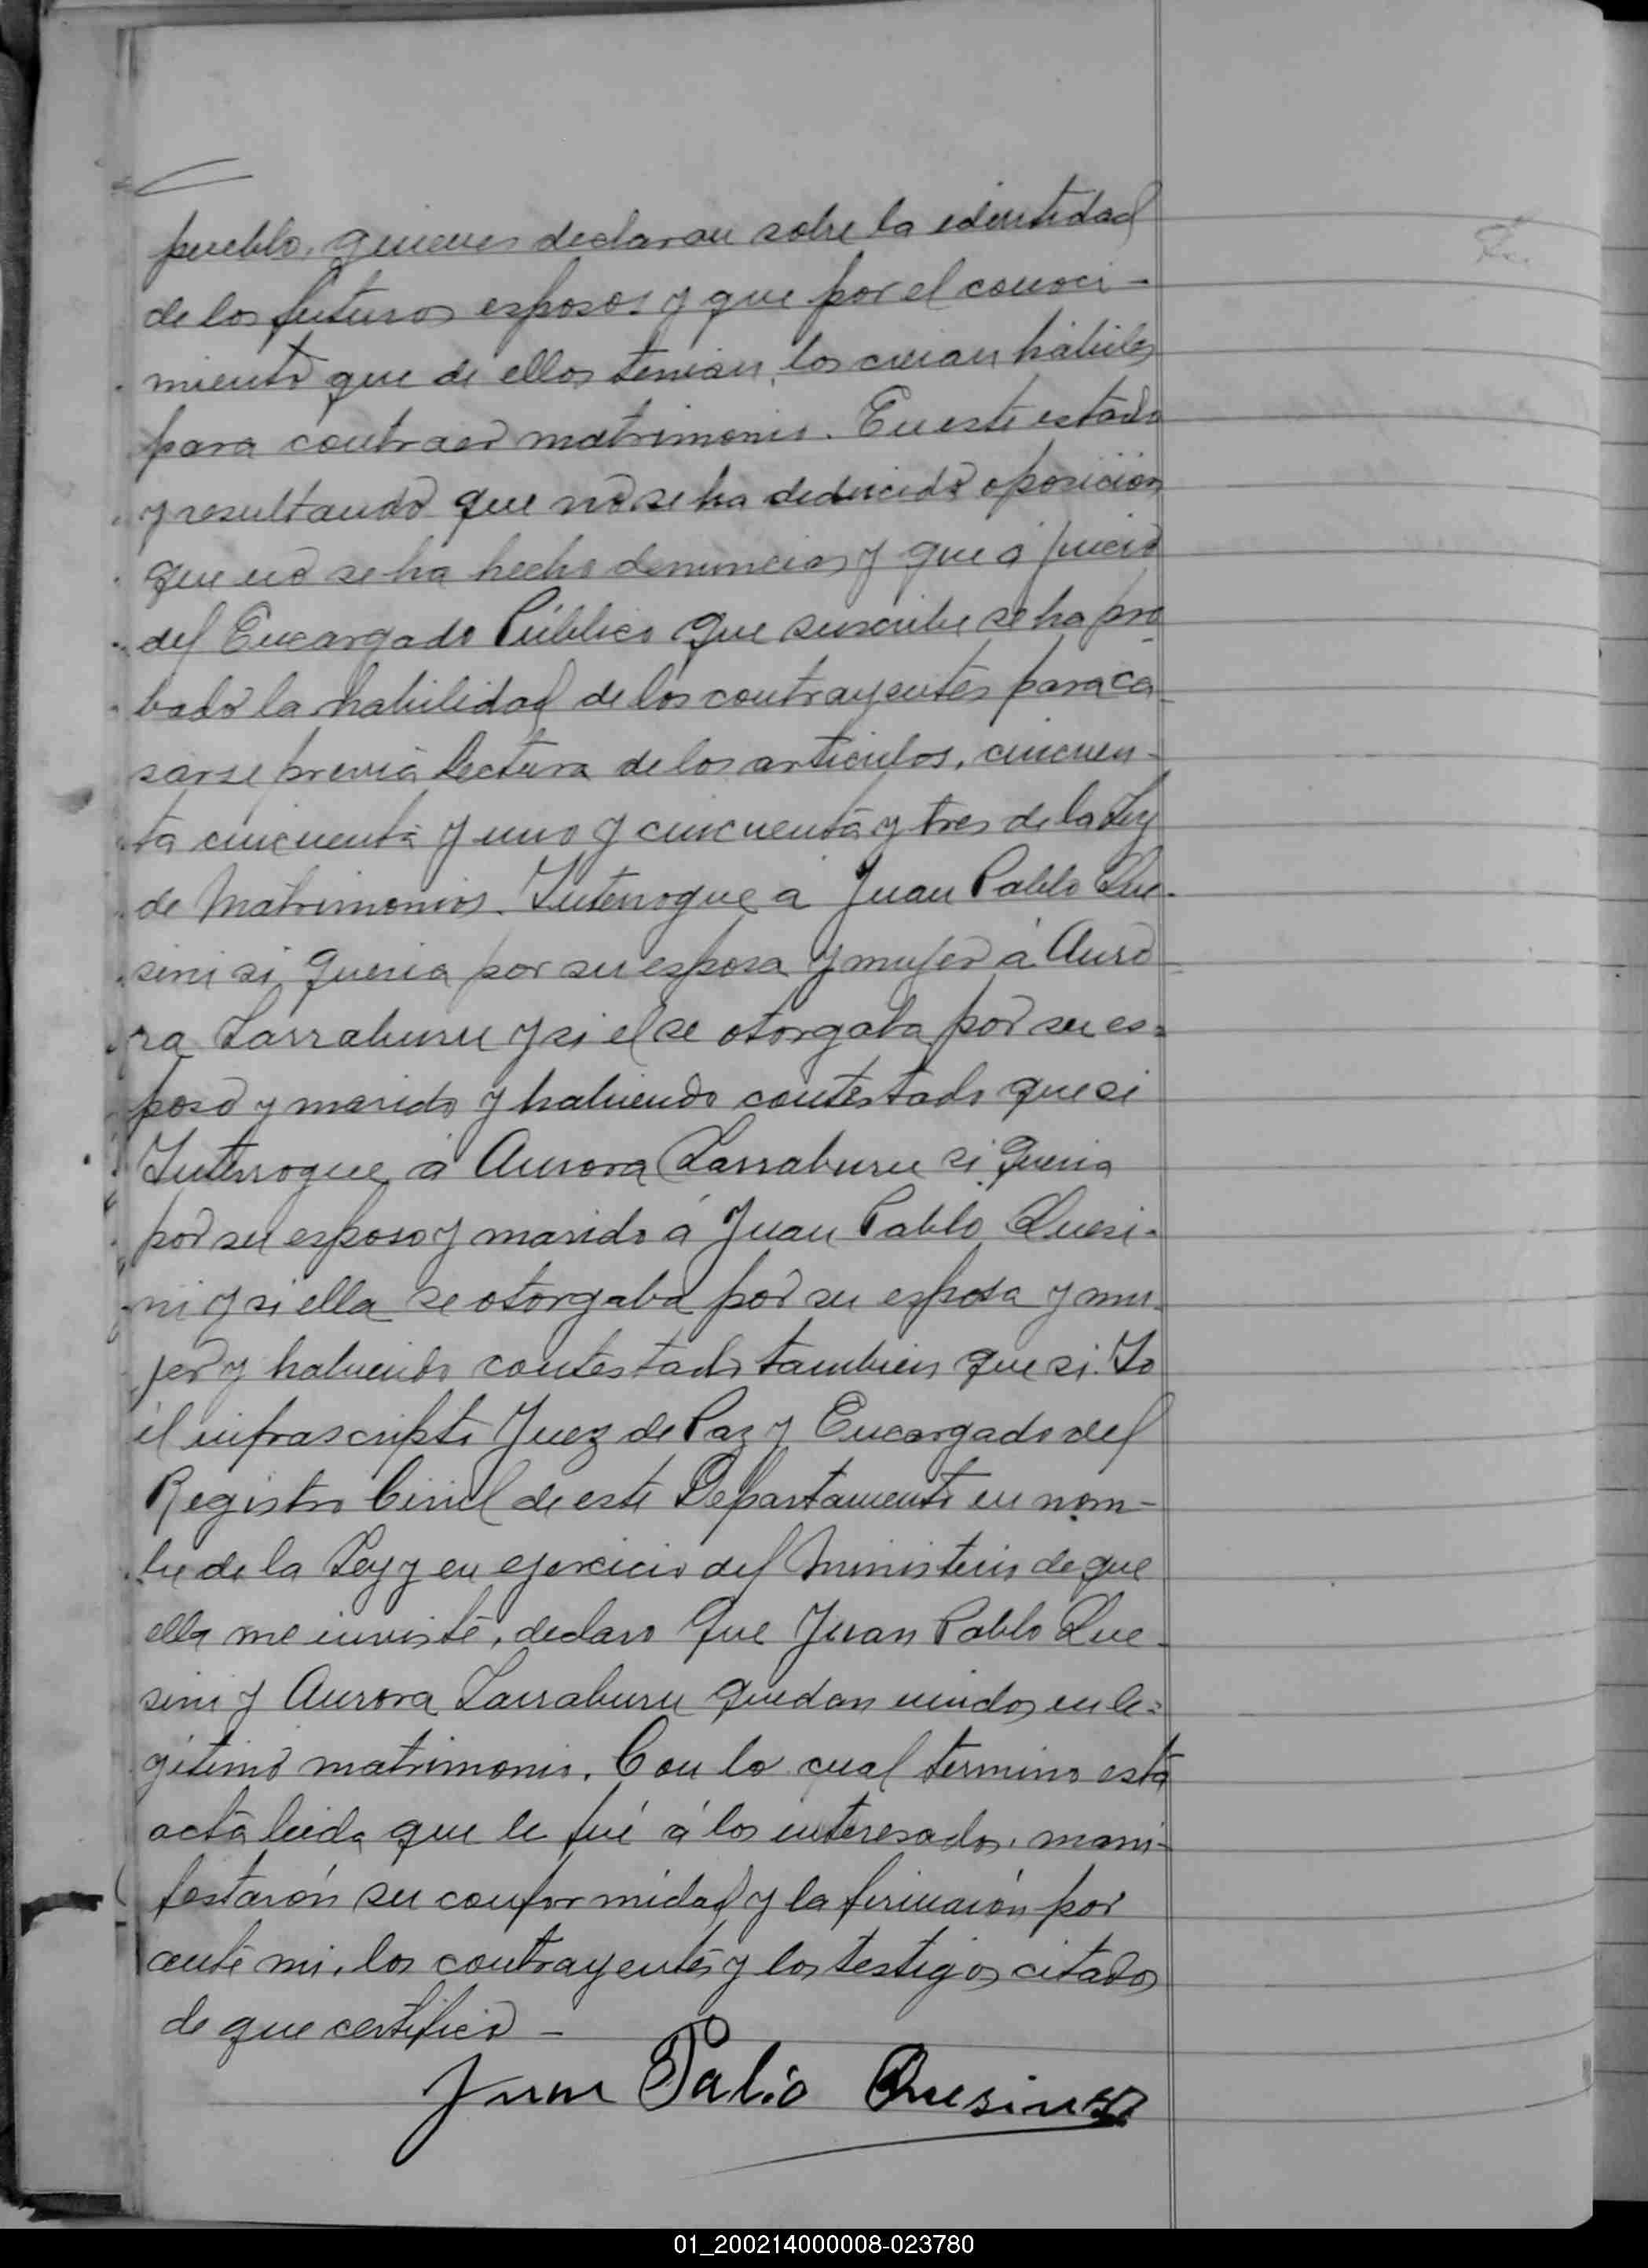 pueblo, quienes declaran sobre la identidad
de los futuros esposos y que por el conoci-
miento que de ellos tenian, los creian hábiles
para contraer matrimonio. En este estado
y resultando que no se ha deducido oposición
que no se ha hecho denuncias y que á juicio
del Encargado Público que suscribe se ha pro
bado la habilidad de los contrayentes para ca-
sarse previa lectura de los articulos, cincuen-
ta cincuenta y uno y cincuenta y tres de la Ley
de Matrimonios. Interrogue a Juan Pablo Que-
sini si queria por su esposa y mujer á Auro-
ra Larraburu y si el se otorgaba por su es-
poso y marido y habiendo contestado que si
Interrogue á Aurora Larraburu si queria
por su esposo y marido á Juan Pablo Quesi-
ni y si ella se otorgaba por su esposa y mu-
jer y habiendo contestado tambien que si. Yo
el infrascripto Juez de Paz y Encargado del
Registro Civil de este Departamento en nom-
bre de la Ley y en ejercicio del Ministerio de que
ella me inviste, declaro que Juan Pablo Que-
sini y Aurora Larraburu quedan unidos en le-
gitimo matrimonio. Con lo cual termino esta
acta leida que le fué á los interesados, mani-
festarón su conformidad y la firmarón por
ante mi, los contrayentes y los testigos citados
de que certifico -
Juan Pablo Quesini
01_200214000008-023780